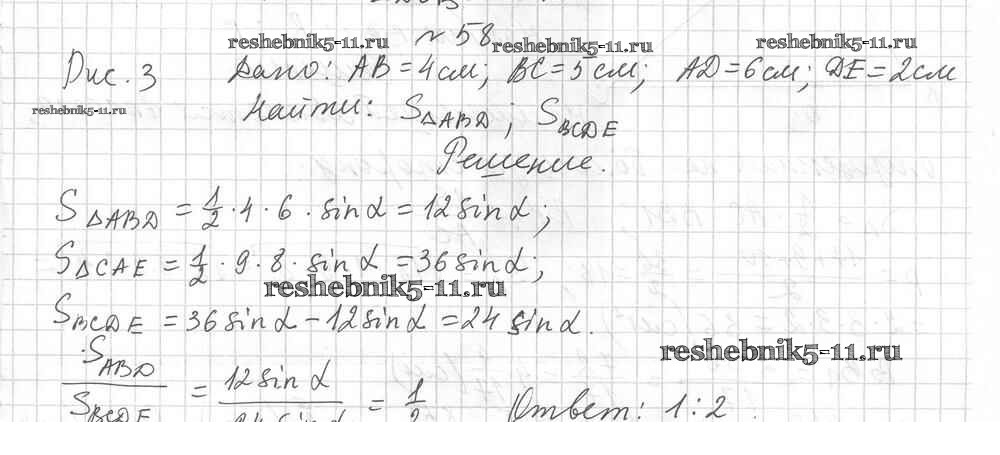 № 58
reshebnik5-11.ru reshebnik5-11.ru reshebnik5-11.ru
Рис. 3 Дано: AB = 4 см; BC = 5 см; AD = 6 см; DE = 2 см
reshebnik5-11.ru
Найти: S△ABD; SBCDE
Решение.
S△ABD = 1/2 · 4 · 6 · sin α = 12 sin α;
S△CAE = 1/2 · 9 · 8 · sin α = 36 sin α;
reshebnik5-11.ru
SBCDE = 36 sin α − 12 sin α = 24 sin α.
reshebnik5-11.ru
SABD / SBCDE = 12 sin α / 24 sin α = 1/2 Ответ: 1:2.